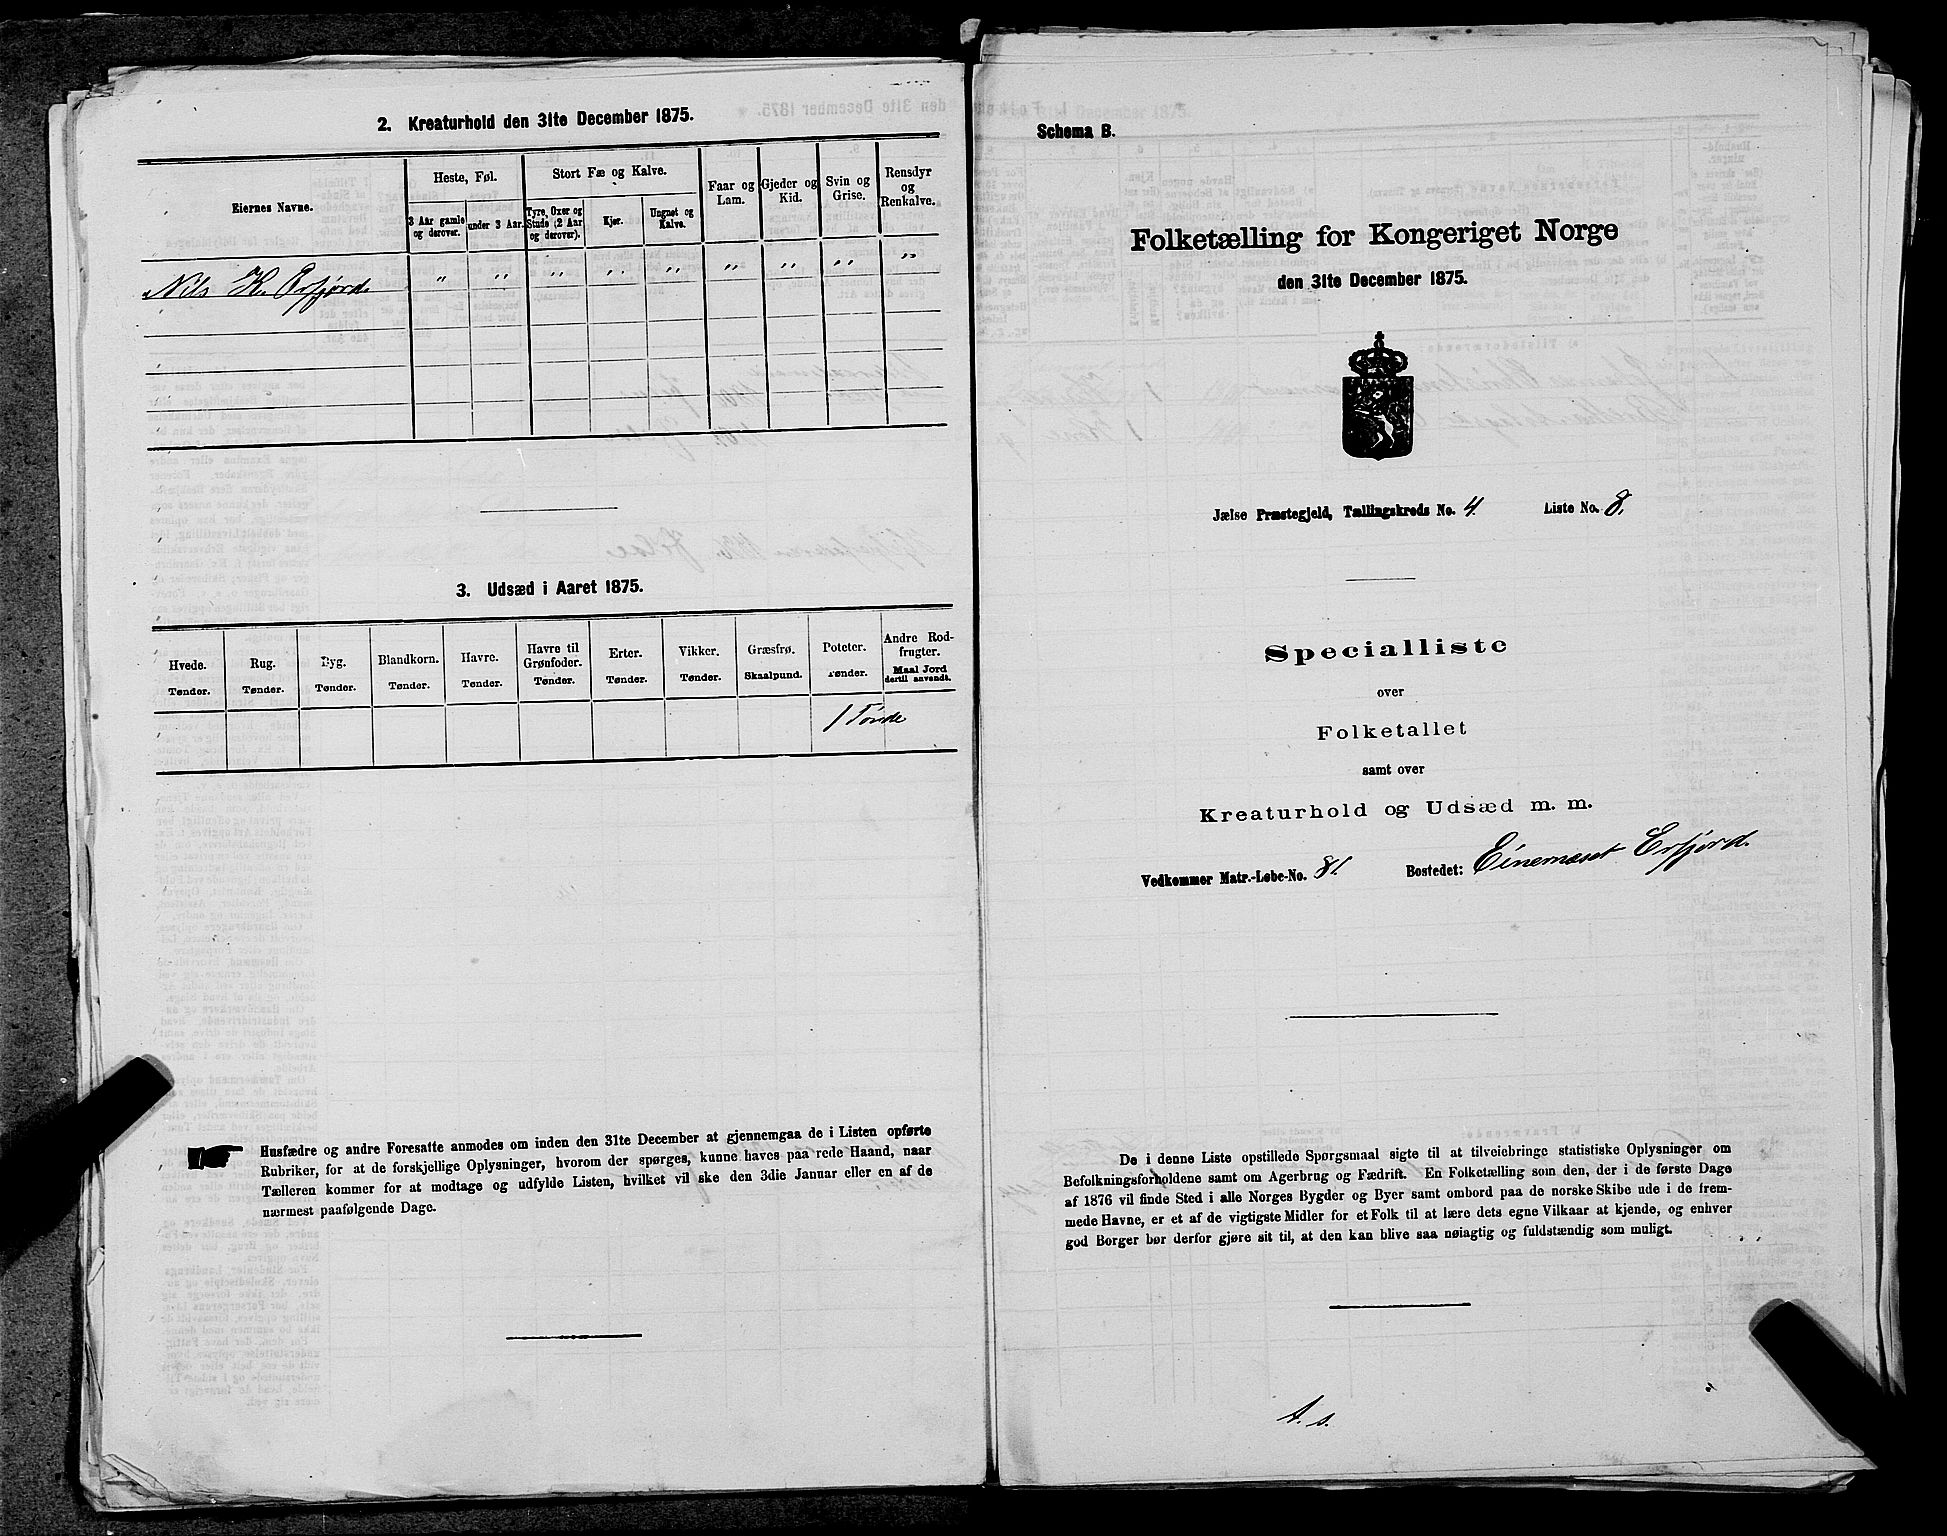 2. Kreaturhold den 31te December 1875.
Eiernes Navne.
Heste, Føl.
3 Aar gamle og derover.
under 3 Aar.
Stort Fæ og Kalve.
Tyre, Oxer og Stude (2 Aar og derover).
Kjør.
Ungnøt og Kalve.
Faar og Lam.
Gjeder og Kid.
Svin og Grise.
Rensdyr og Renkalve.
Nils K. Erfjord " " " " " " " " "
3. Udsæd i Aaret 1875.
Hvede. Tønder.
Rug. Tønder.
Byg. Tønder.
Blandkorn. Tønder.
Havre. Tønder.
Havre til Grønfoder. Tønder.
Erter. Tønder.
Vikker. Tønder.
Græsfrø. Skaalpund.
Poteter. Tønder.
Andre Rodfrugter. Maal Jord dertil anvendt.
1 Tønde
Husfædre og andre Foresatte anmodes om inden den 31te December at gjennemgaa de i Listen opførte
Rubriker, for at de forskjellige Oplysninger, hvorom der spørges, kunne haves paa rede Haand, naar
Tælleren kommer for at modtage og udfylde Listen, hvilket vil ske den 3die Januar eller en af de
nærmest paafølgende Dage.
Schema B.
Folketælling for Kongeriget Norge
den 31te December 1875.
Jælse Præstegjeld, Tællingskreds No. 4. Liste No. 8.
Specialliste
over
Folketallet
samt over
Kreaturhold og Udsæd m. m.
Vedkommer Matr.-Løbe-No. 81. Bostedet: Einemæset Erfjord.
De i denne Liste opstillede Spørgsmaal sigte til at tilveiebringe statistiske Oplysninger om
Befolkningsforholdene samt om Agerbrug og Fædrift. En Folketælling som den, der i de første Dage
af 1876 vil finde Sted i alle Norges Bygder og Byer samt ombord paa de norske Skibe ude i de frem-
mede Havne, er et af de vigtigste Midler for et Folk til at lære dets egne Vilkaar at kjende, og enhver
god Borger bør derfor gjøre sit til, at den kan blive saa nøiagtig og fuldstændig som muligt.
A. s.